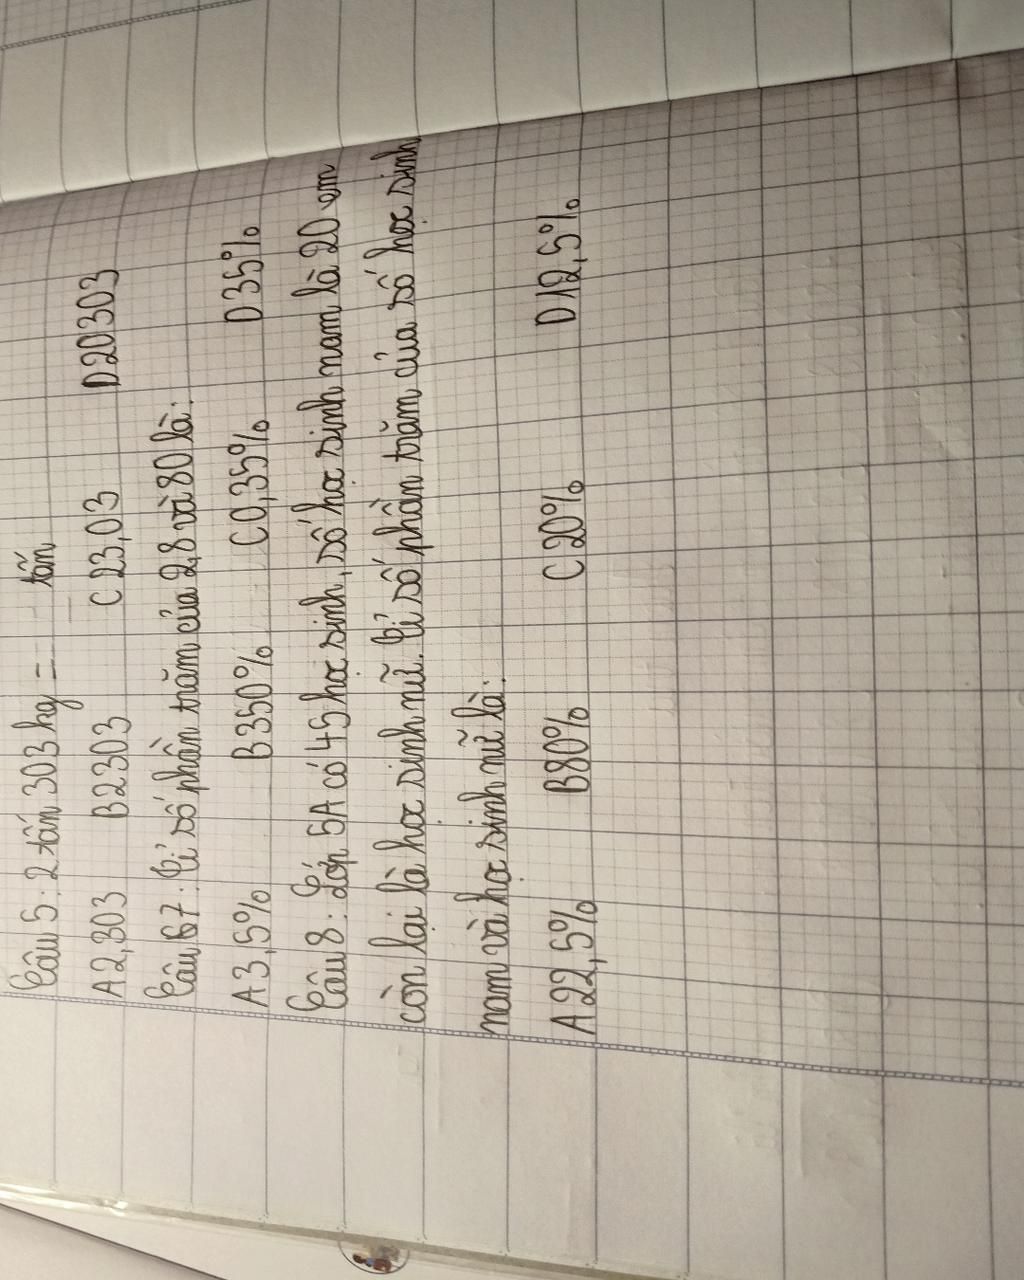 Câu 5: 2 tấn 303 kg = tấn
A 2,303 B 2303 C 23,03 D 20303
Câu 67: Tỉ số phần trăm của 2,8 và 80 là:
A 3,5% B 350% C 0,35% D 35%
Câu 8: Lớp 5A có 45 học sinh, số học sinh nam là 20 em
còn lại là học sinh nữ. Tỉ số phần trăm của số học sinh
nam và học sinh nữ là:
A 22,5% B 80% C 20% D 12,5%